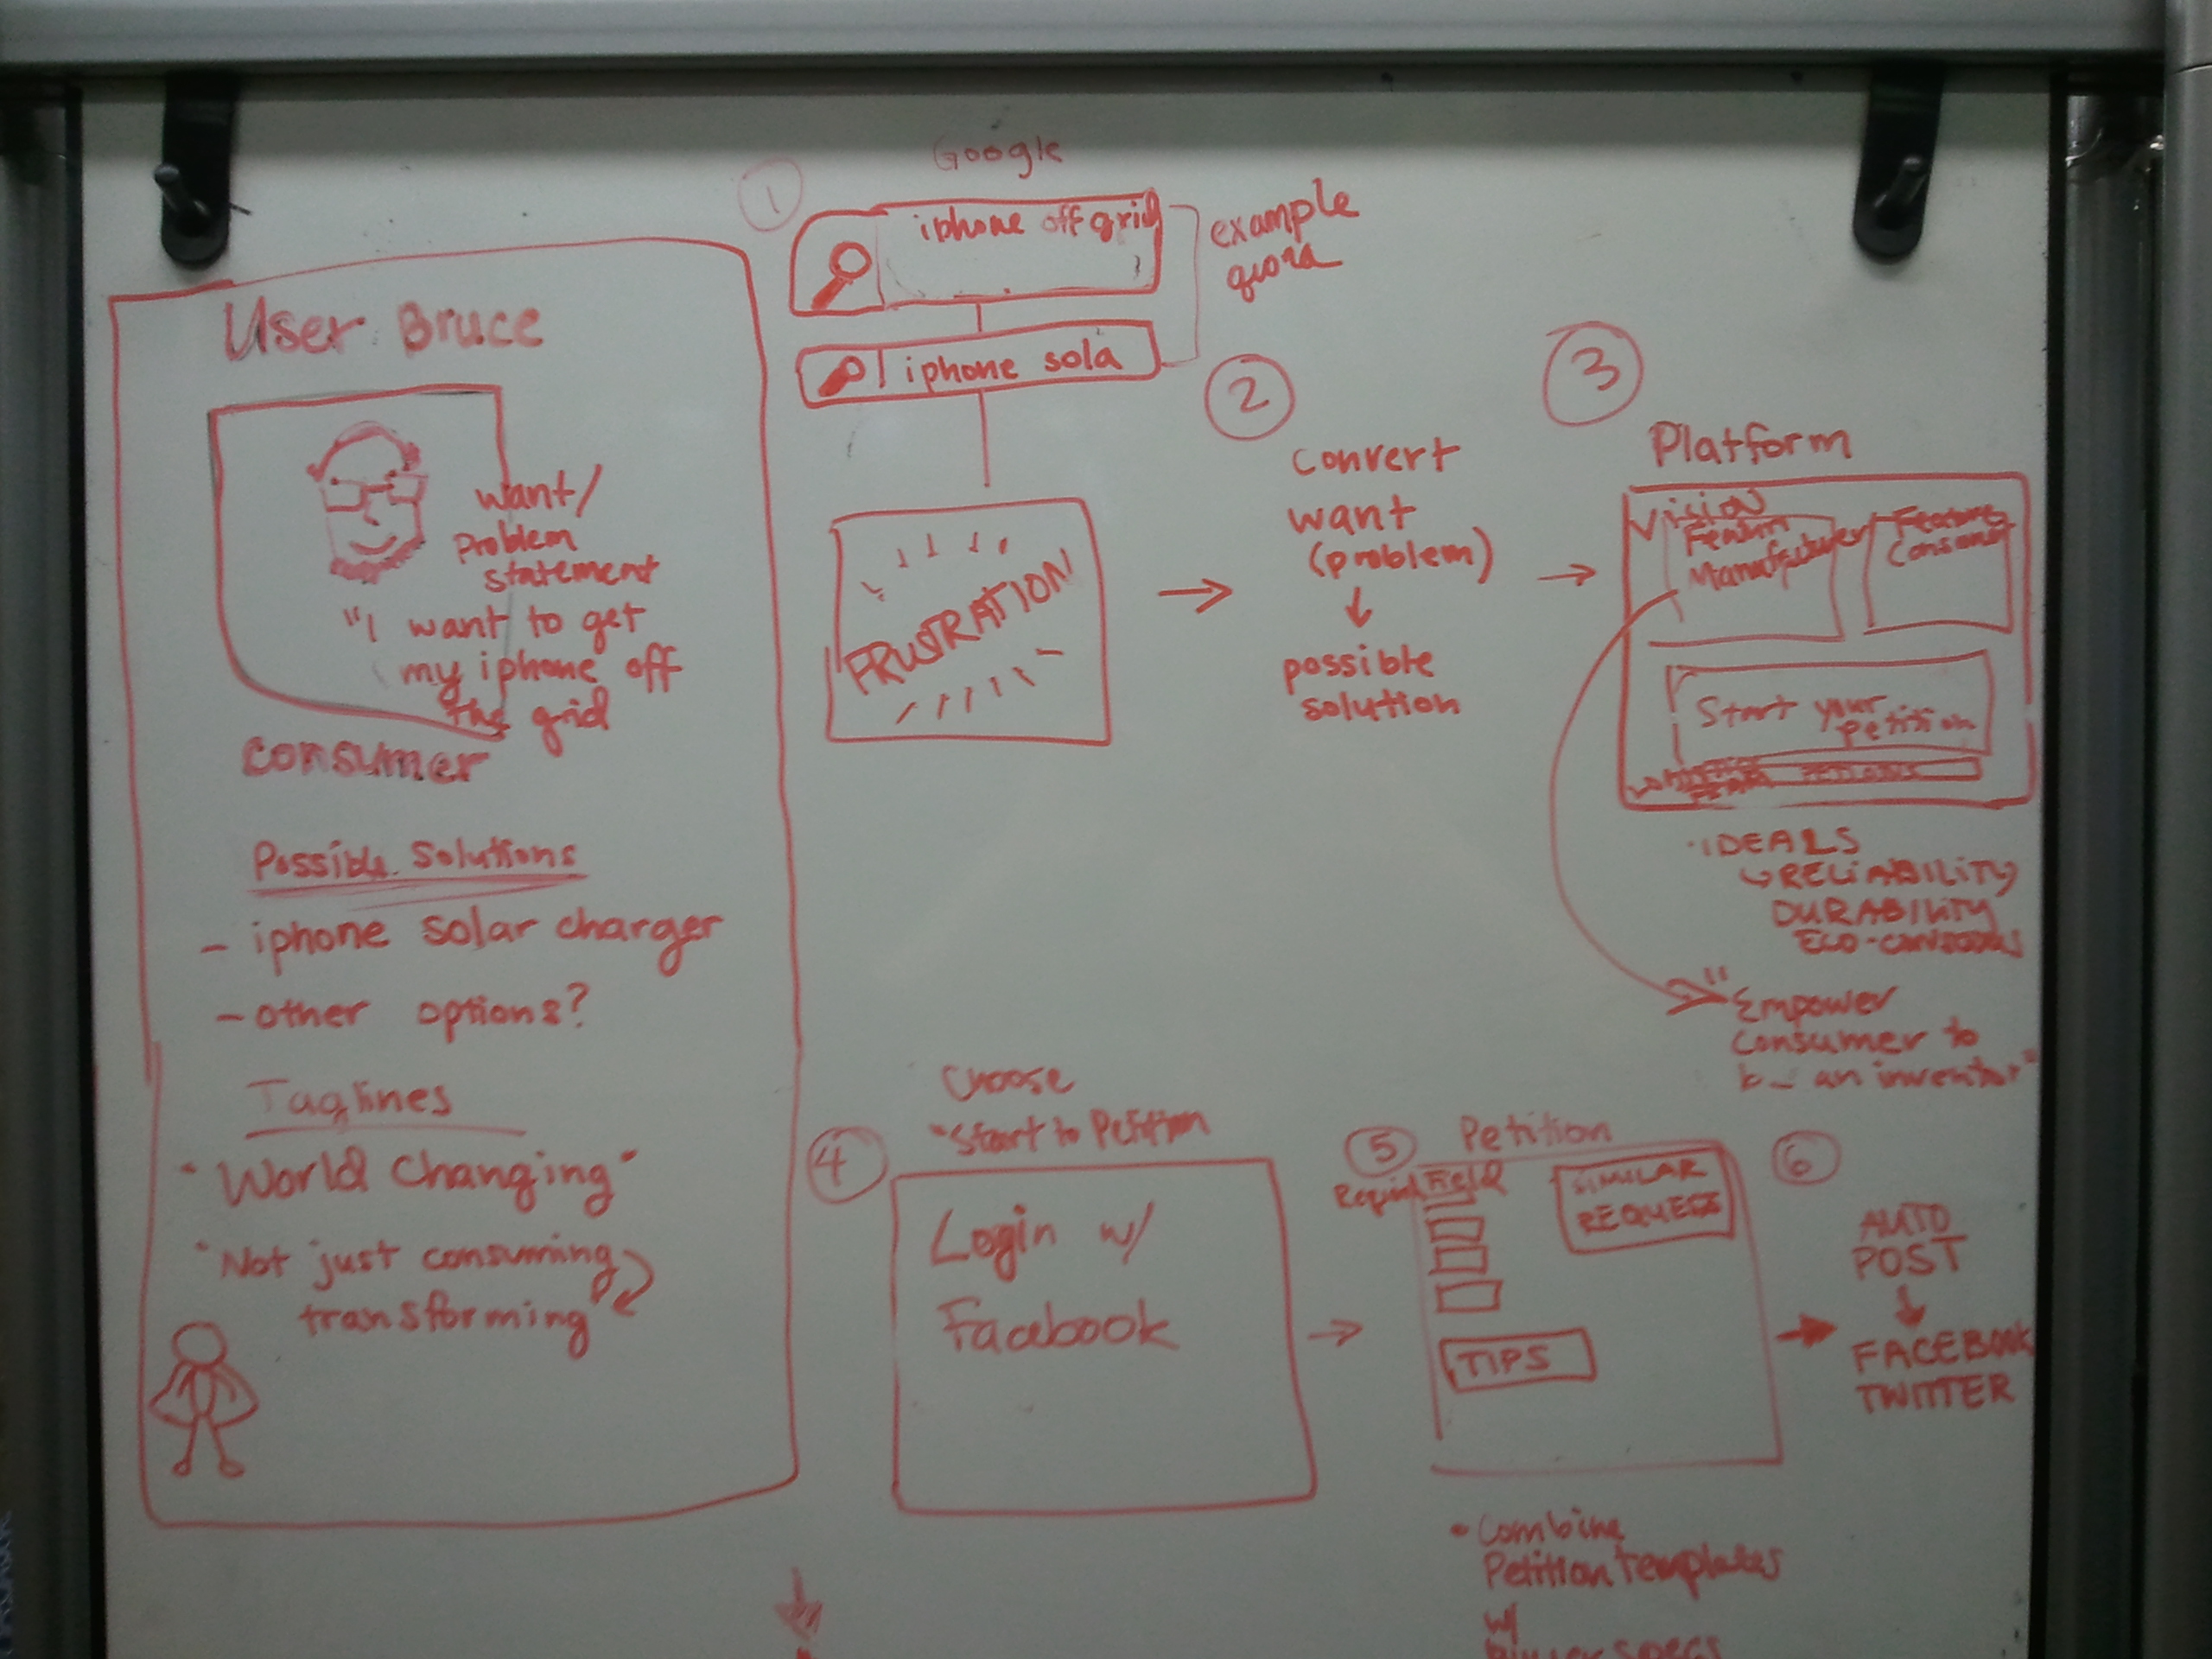 User Bruce
want/
problem
statement
"I want to get
my iphone off
the grid
consumer
Possible Solutions
- iphone solar charger
- other options?
Taglines
"World Changing"
"Not just consuming
transforming"
1
Google
iphone off grid
iphone sola
example
quora
FRUSTRATION
2
convert
want
(problem)
possible
solution
3
Platform
Vision
Feature
Manufacturer
Feature
Consumer
Start your
petition
• IDEALS
RELIABILITY
DURABILITY
"Empower
consumer to
b_ an inventor"
4
Choose
"Start to Petition
Login w/
Facebook
5
Petition
Field
SIMILAR
REQUEST
TIPS
• Combine
Petition templates
w/
specs
6
AUTO
POST
FACEBOOK
TWITTER